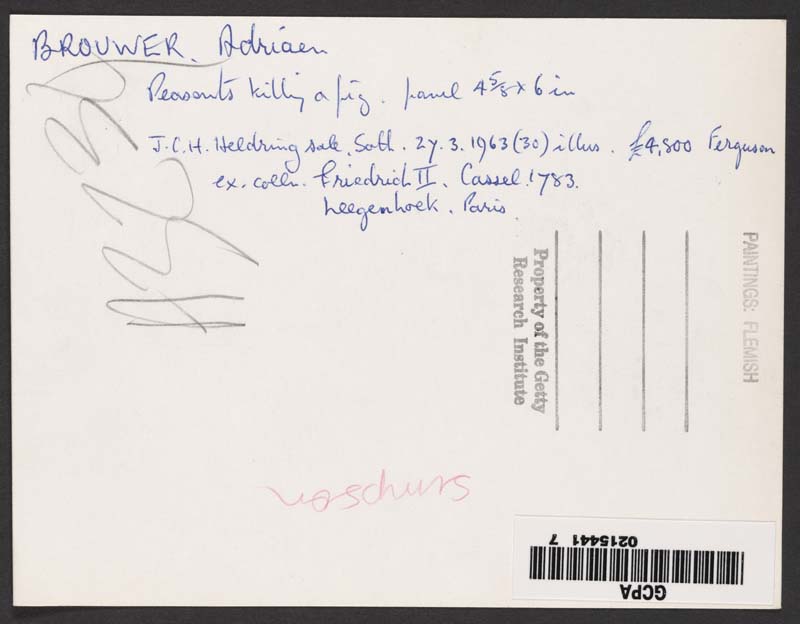 BROUWER. Adriaen
Peasants killing a pig. panel 4 5/8 x 6 in
J.C.H. Heldring sale. Soth. 27.3.1963 (30) illus. £4,800 Ferguson
ex. colln. Friedrich II. Cassel. 1783.
Leegenhoek. Paris.
Property of the Getty
Research Institute
PAINTINGS: FLEMISH
0215441 7
GCPA